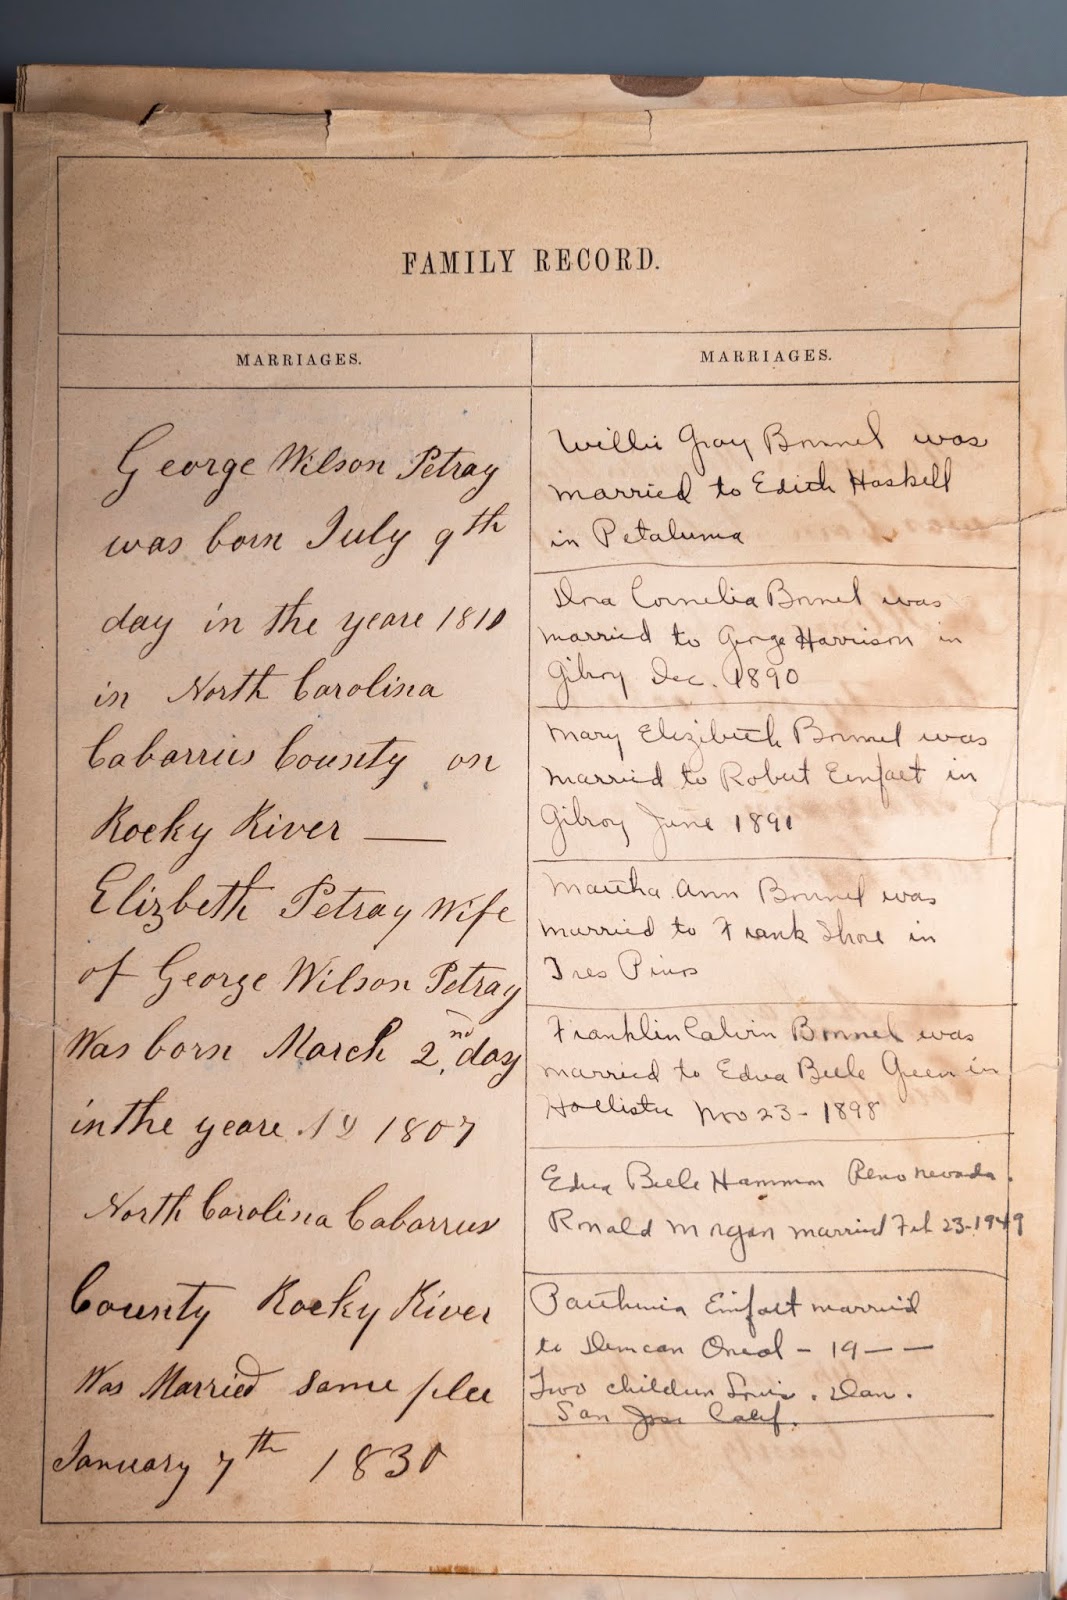 FAMILY RECORD.
MARRIAGES.
George Wilson Petray
was born July 9th
day in the yeare 1810
in North Carolina
Cabarrus County on
Rocky River —
Elizbeth Petray Wife
of George Wilson Petray
Was born March 2nd, day
in the yeare AD 1807
North Carolina Cabarrus
County Rocky River
Was Married same plee
January 7th 1830
MARRIAGES.
Willie Gray Bonnel was
married to Edith Haskell
in Petaluma
Dora Cornelia Bonnel was
married to George Harrison in
Gilroy Dec. 1890
Mary Elizibeth Bonnel was
married to Robert Einfalt in
Gilroy June 1891
Martha Ann Bonnel was
married to Frank Shore in
Tres Pinos
Franklin Calvin Bonnel was
married to Edna Belle Green in
Hollister Nov 23 - 1898
Edna Belle Hammon Reno Nevada.
Ronald Morgan married Feb 23-1949
Einfalt married
to Duncan Oneal - 19 — —
Two children Louis. Dan.
San Jose Calif.